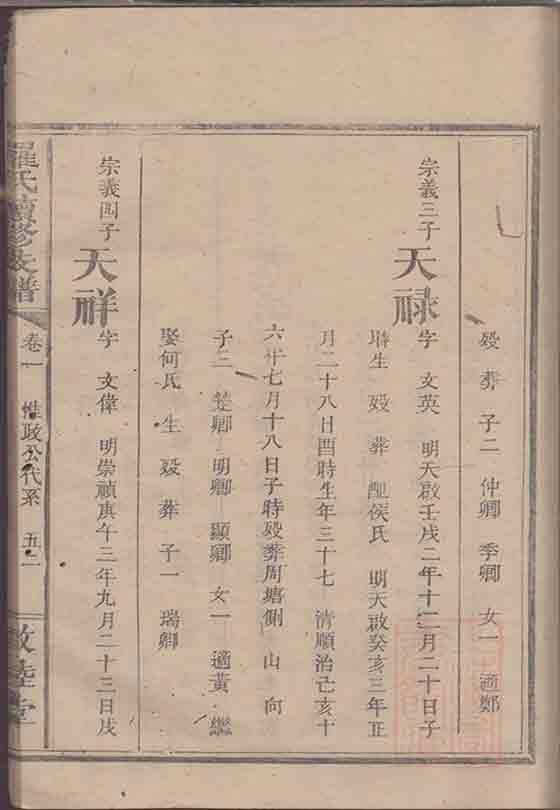 殁 葬 子二 仲卿 季卿 女一 適鄭
宗義三子
天祿
字 文英 明天啟壬戌二年十二月二十日子
時生 殁 葬 配侯氏 明天啟癸亥三年正
月二十八日酉時生年三十七 清順治己亥十
六年七月十八日子時殁葬周塘側 山 向
子三 卿 明卿 顯卿 女一 適黃 繼
娶何氏 生 殁 葬 子一 瑞卿
宗義四子
天祥
字 文偉 明崇禎庚午三年九月二十三日戌
羅氏續修支譜
卷一 惟政公代系 五二
敦睦堂